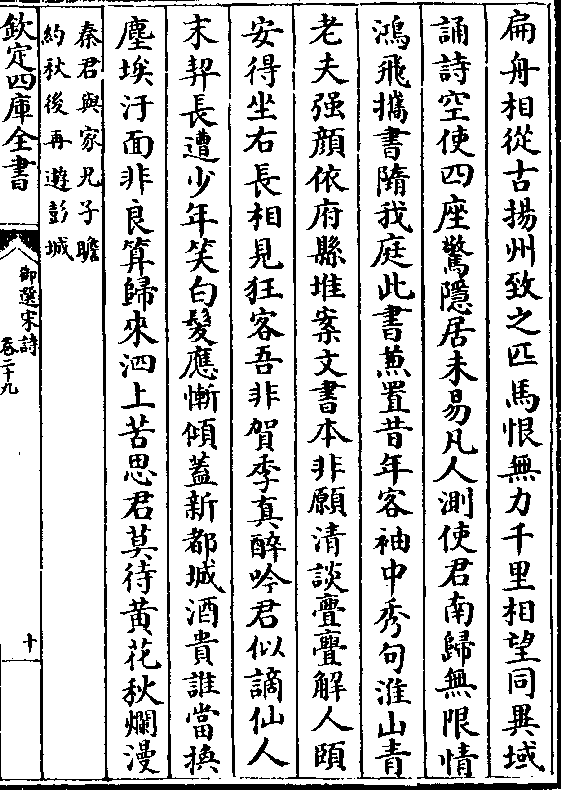 扁舟相從古揚州致之匹馬恨無力千里相望同異域
誦詩空使四座驚隱居未易凡人測使君南歸無限情
鴻飛攜書隋我庭此書兼置昔年客袖中秀句淮山青
老夫强顔依府縣堆案文書本非願清談亹亹解人頤
安得坐右長相見狂客吾非賀季真醉吟君似謫仙人
末契長遭少年笑白髮應慚傾蓋新都城酒貴誰當換
塵埃汙面非良算歸來泗上苦思君莫待黄花秋爛漫
秦君與家兄子瞻
約秋後再遊彭城
欽定四庫全書
御選宋詩
卷二十九
十